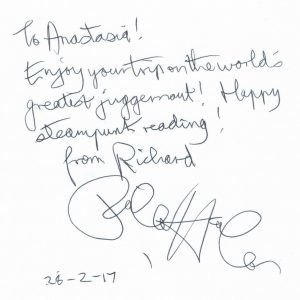 To Anastasia!
Enjoy your trip on the world's
greatest juggernaut! Happy
steampunk reading!
from Richard
28-2-17